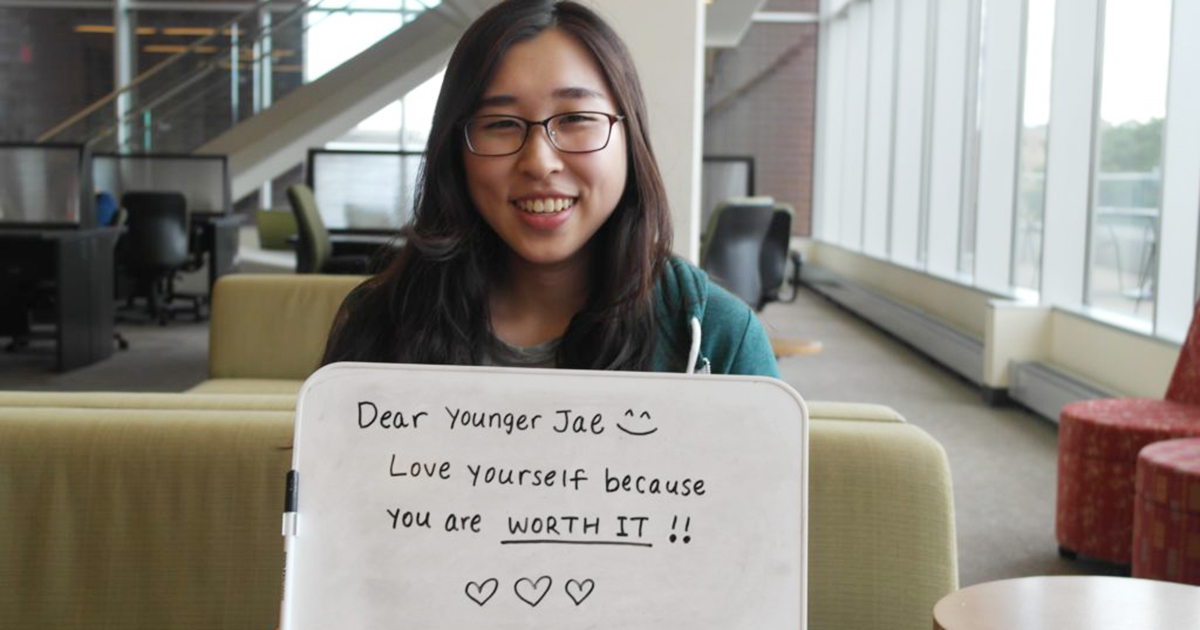 Dear Younger Jae ^‿^
Love yourself because
you are WORTH IT !!
♡ ♡ ♡